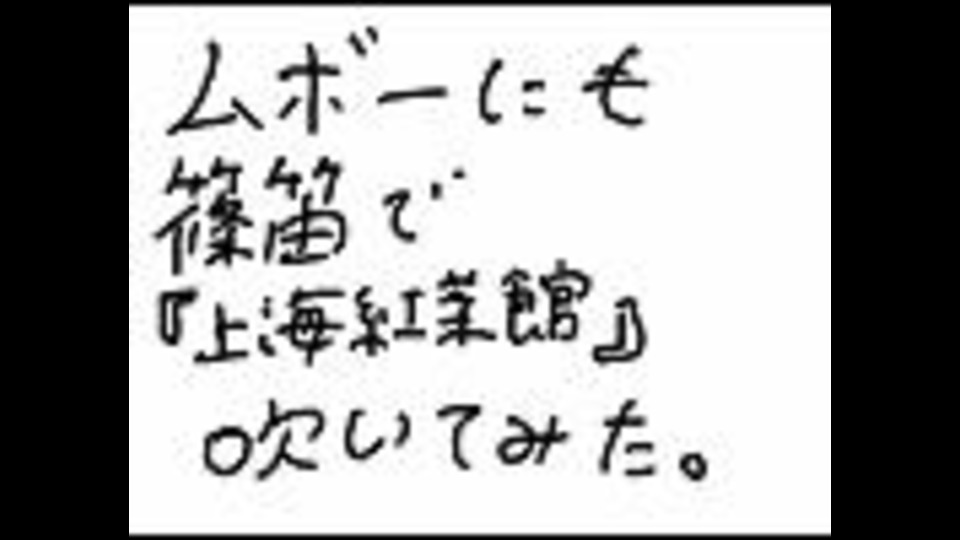 ムボーにも
篠笛で
『上海紅茶館』
吹いてみた。